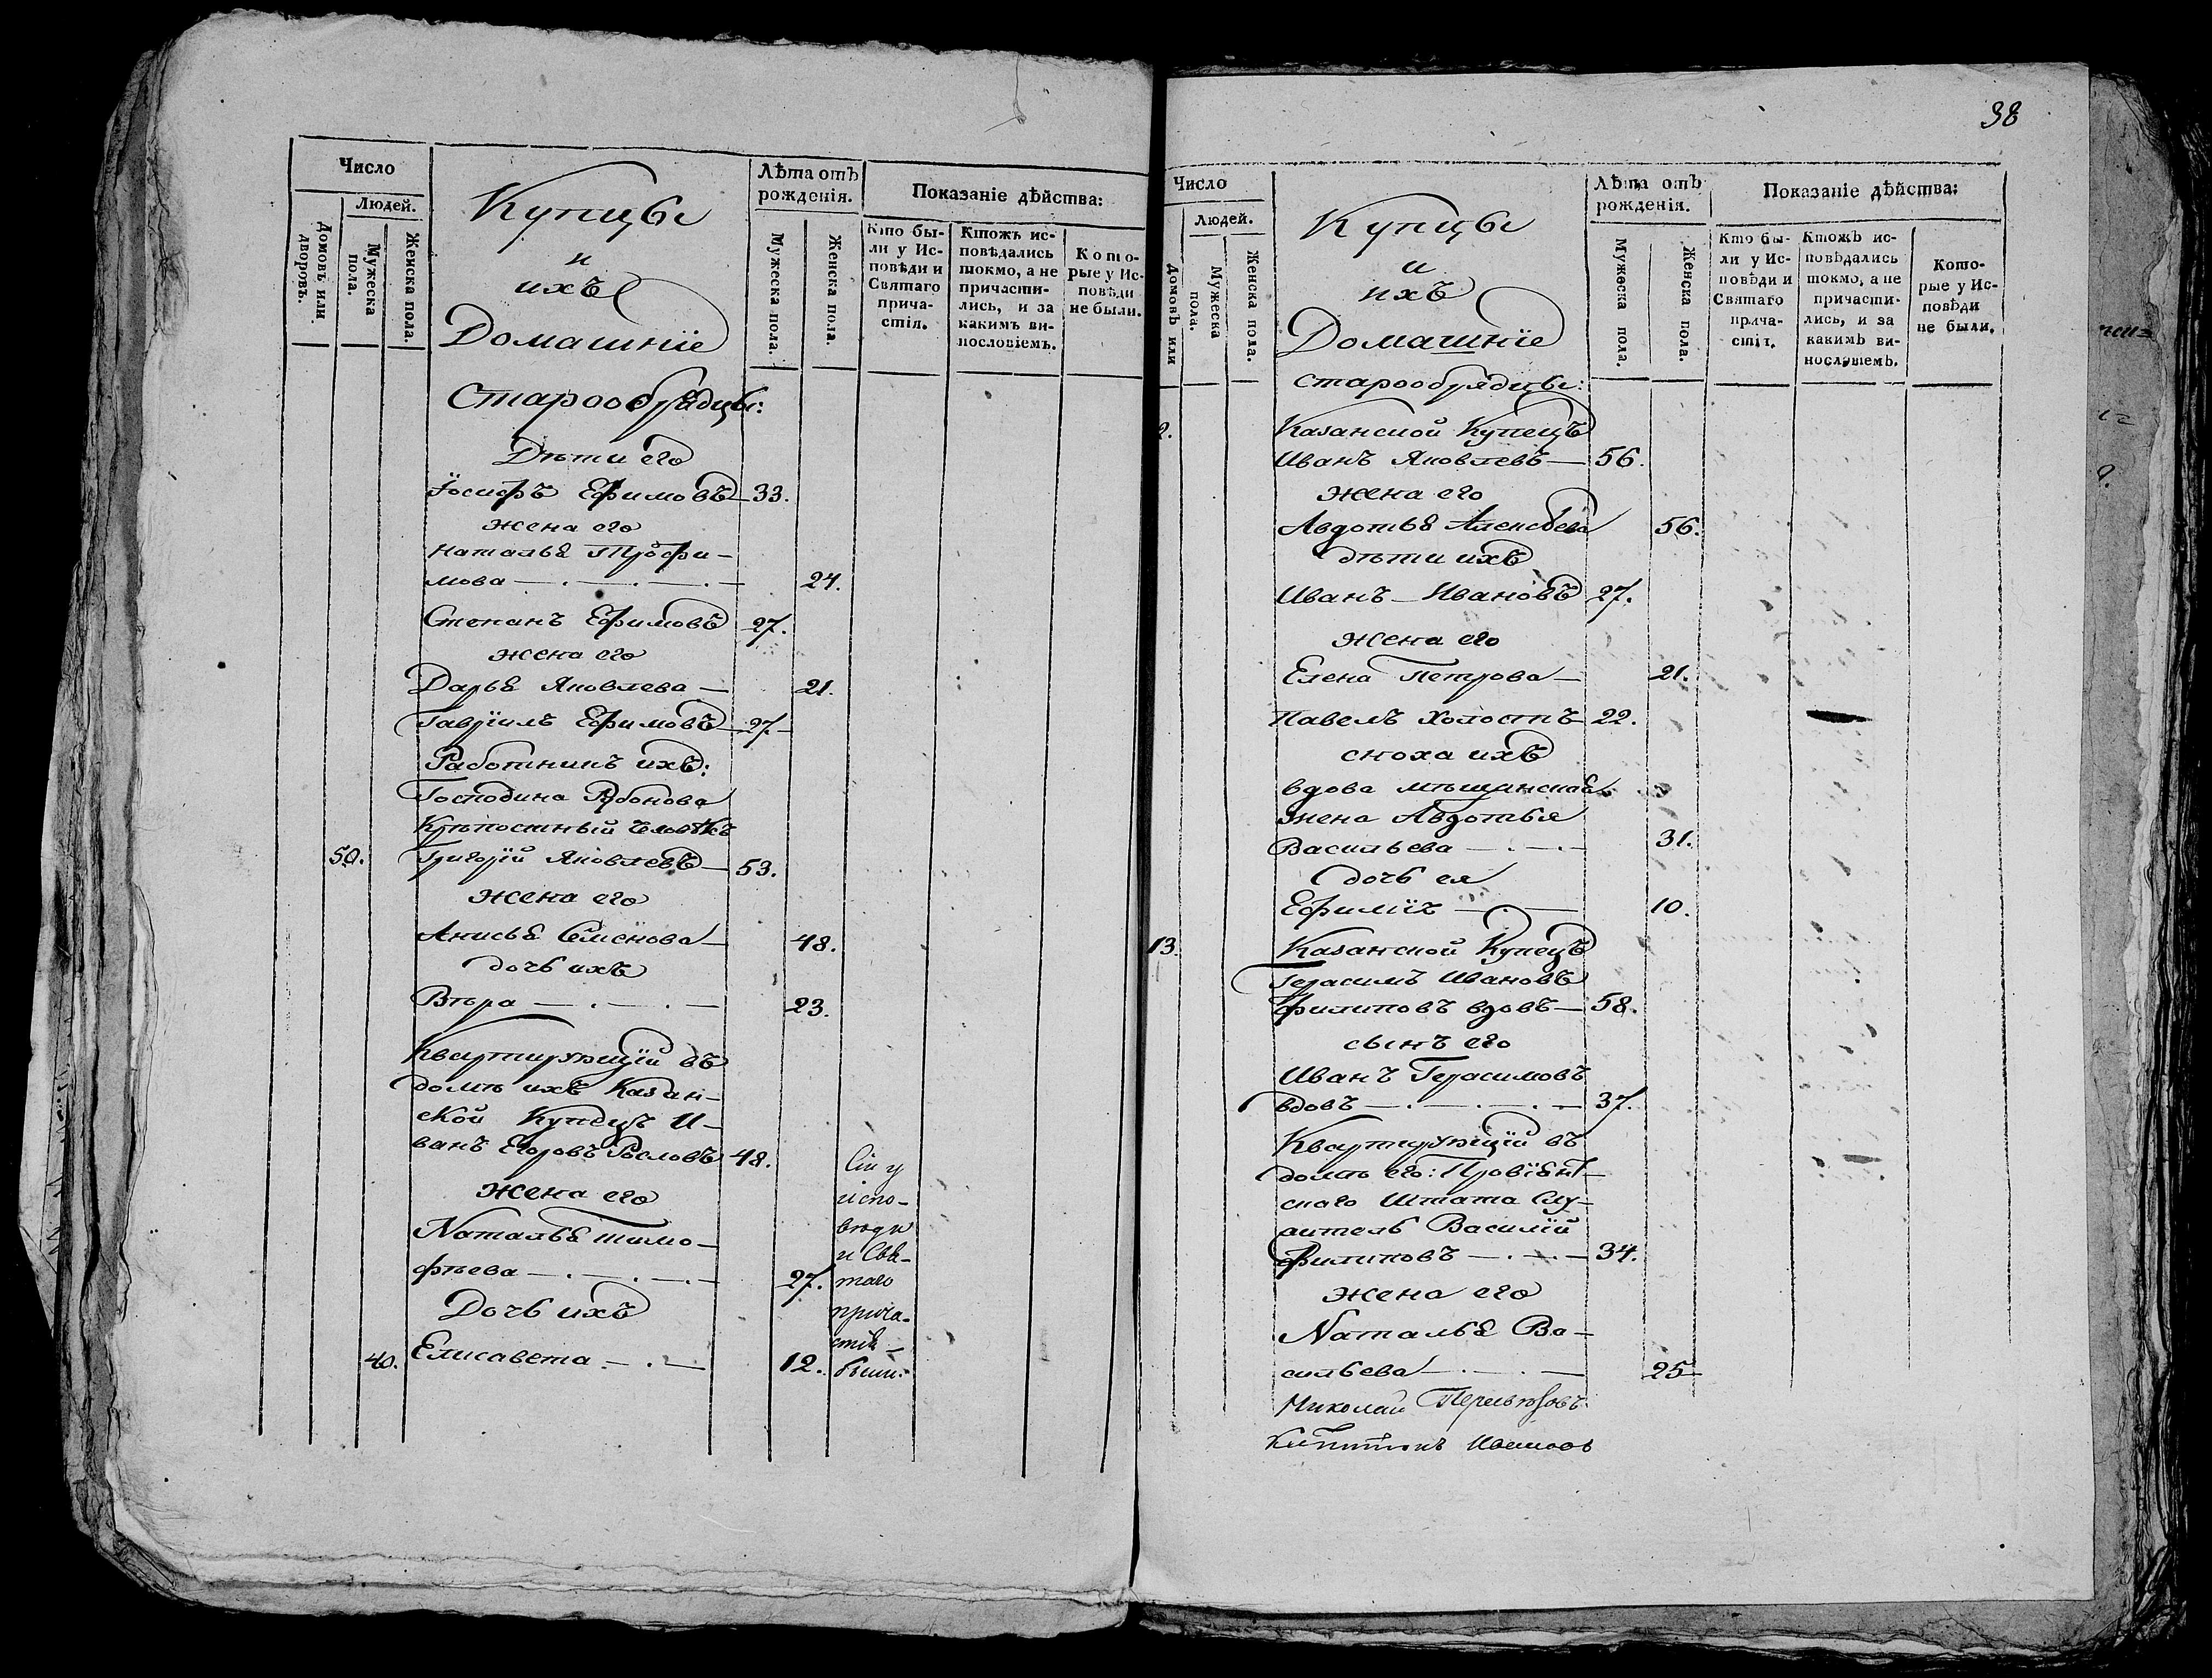 Число
Людей.
Домовъ или дворовъ.
Мужеска пола.
Женска пола.
Купцы
и
ихъ
Домашніе
Лѣта отъ
рожденія.
Мужеска пола.
Женска пола.
Показаніе дѣйства:
Кто бы-
ли у Ис-
повѣди и
Святаго
прича-
стія.
Ктожъ ис-
повѣдались
токмо, а не
причасти-
лись, и за
какимъ ви-
нословіемъ.
Кото-
рые у Ис-
повѣди
не были.
Старообрядцы:
Дѣти его
Іосифъ Ефимовъ 33.
жена его
Наталья Трофи-
мова 24.
Степанъ Ефимовъ 27.
жена его
Дарья Яковлева 21.
Гавріилъ Ефимовъ 27.
Работникъ ихъ:
Господина
Крѣпостный человѣкъ
50. Григорій Яковлевъ 53.
жена его
Анисья Семенова 48.
дочь ихъ
Вѣра 23.
Квартирующій въ
домѣ ихъ Казан-
ской Купецъ И-
ванъ Егоровъ 48.
жена его
Наталья Тимо-
фѣева 27.
Дочь ихъ
40. Елисавета 12.
Сіи у
испо-
вѣди
и Свя-
таго
прича-
стія
были.
38
Число
Людей.
Домовъ или
Мужеска пола.
Женска пола.
Купцы
и
ихъ
Домашніе
Лѣта отъ
рожденія.
Мужеска пола.
Женска пола.
Показаніе дѣйства:
Кто бы-
ли у Ис-
повѣди и
Святаго
прича-
стія.
Ктожъ ис-
повѣдались
токмо, а не
причасти-
лись, и за
какимъ ви-
нословіемъ.
Кото-
рые у Ис-
повѣди
не были.
старообрядцы:
2. Казанской Купецъ
Иванъ Яковлевъ 56.
жена его
Авдотья Алексѣева 56.
дѣти ихъ
Иванъ Ивановъ 27.
жена его
Елена Петрова 21.
Павелъ холостъ 22.
сноха ихъ
вдова мѣщанская
жена Авдотья
Васильева 31.
дочь ея
10.
13. Казанской Купецъ
Герасимъ Ивановъ
Филиповъ вдовъ 58.
сынъ его
Иванъ Герасимовъ
вдовъ 37.
Квартирующій въ
домѣ его: Провіянт-
скаго Штата Слу-
житель Василій
Филиповъ 34.
жена его
Наталья Ва-
сильева 25
Николай